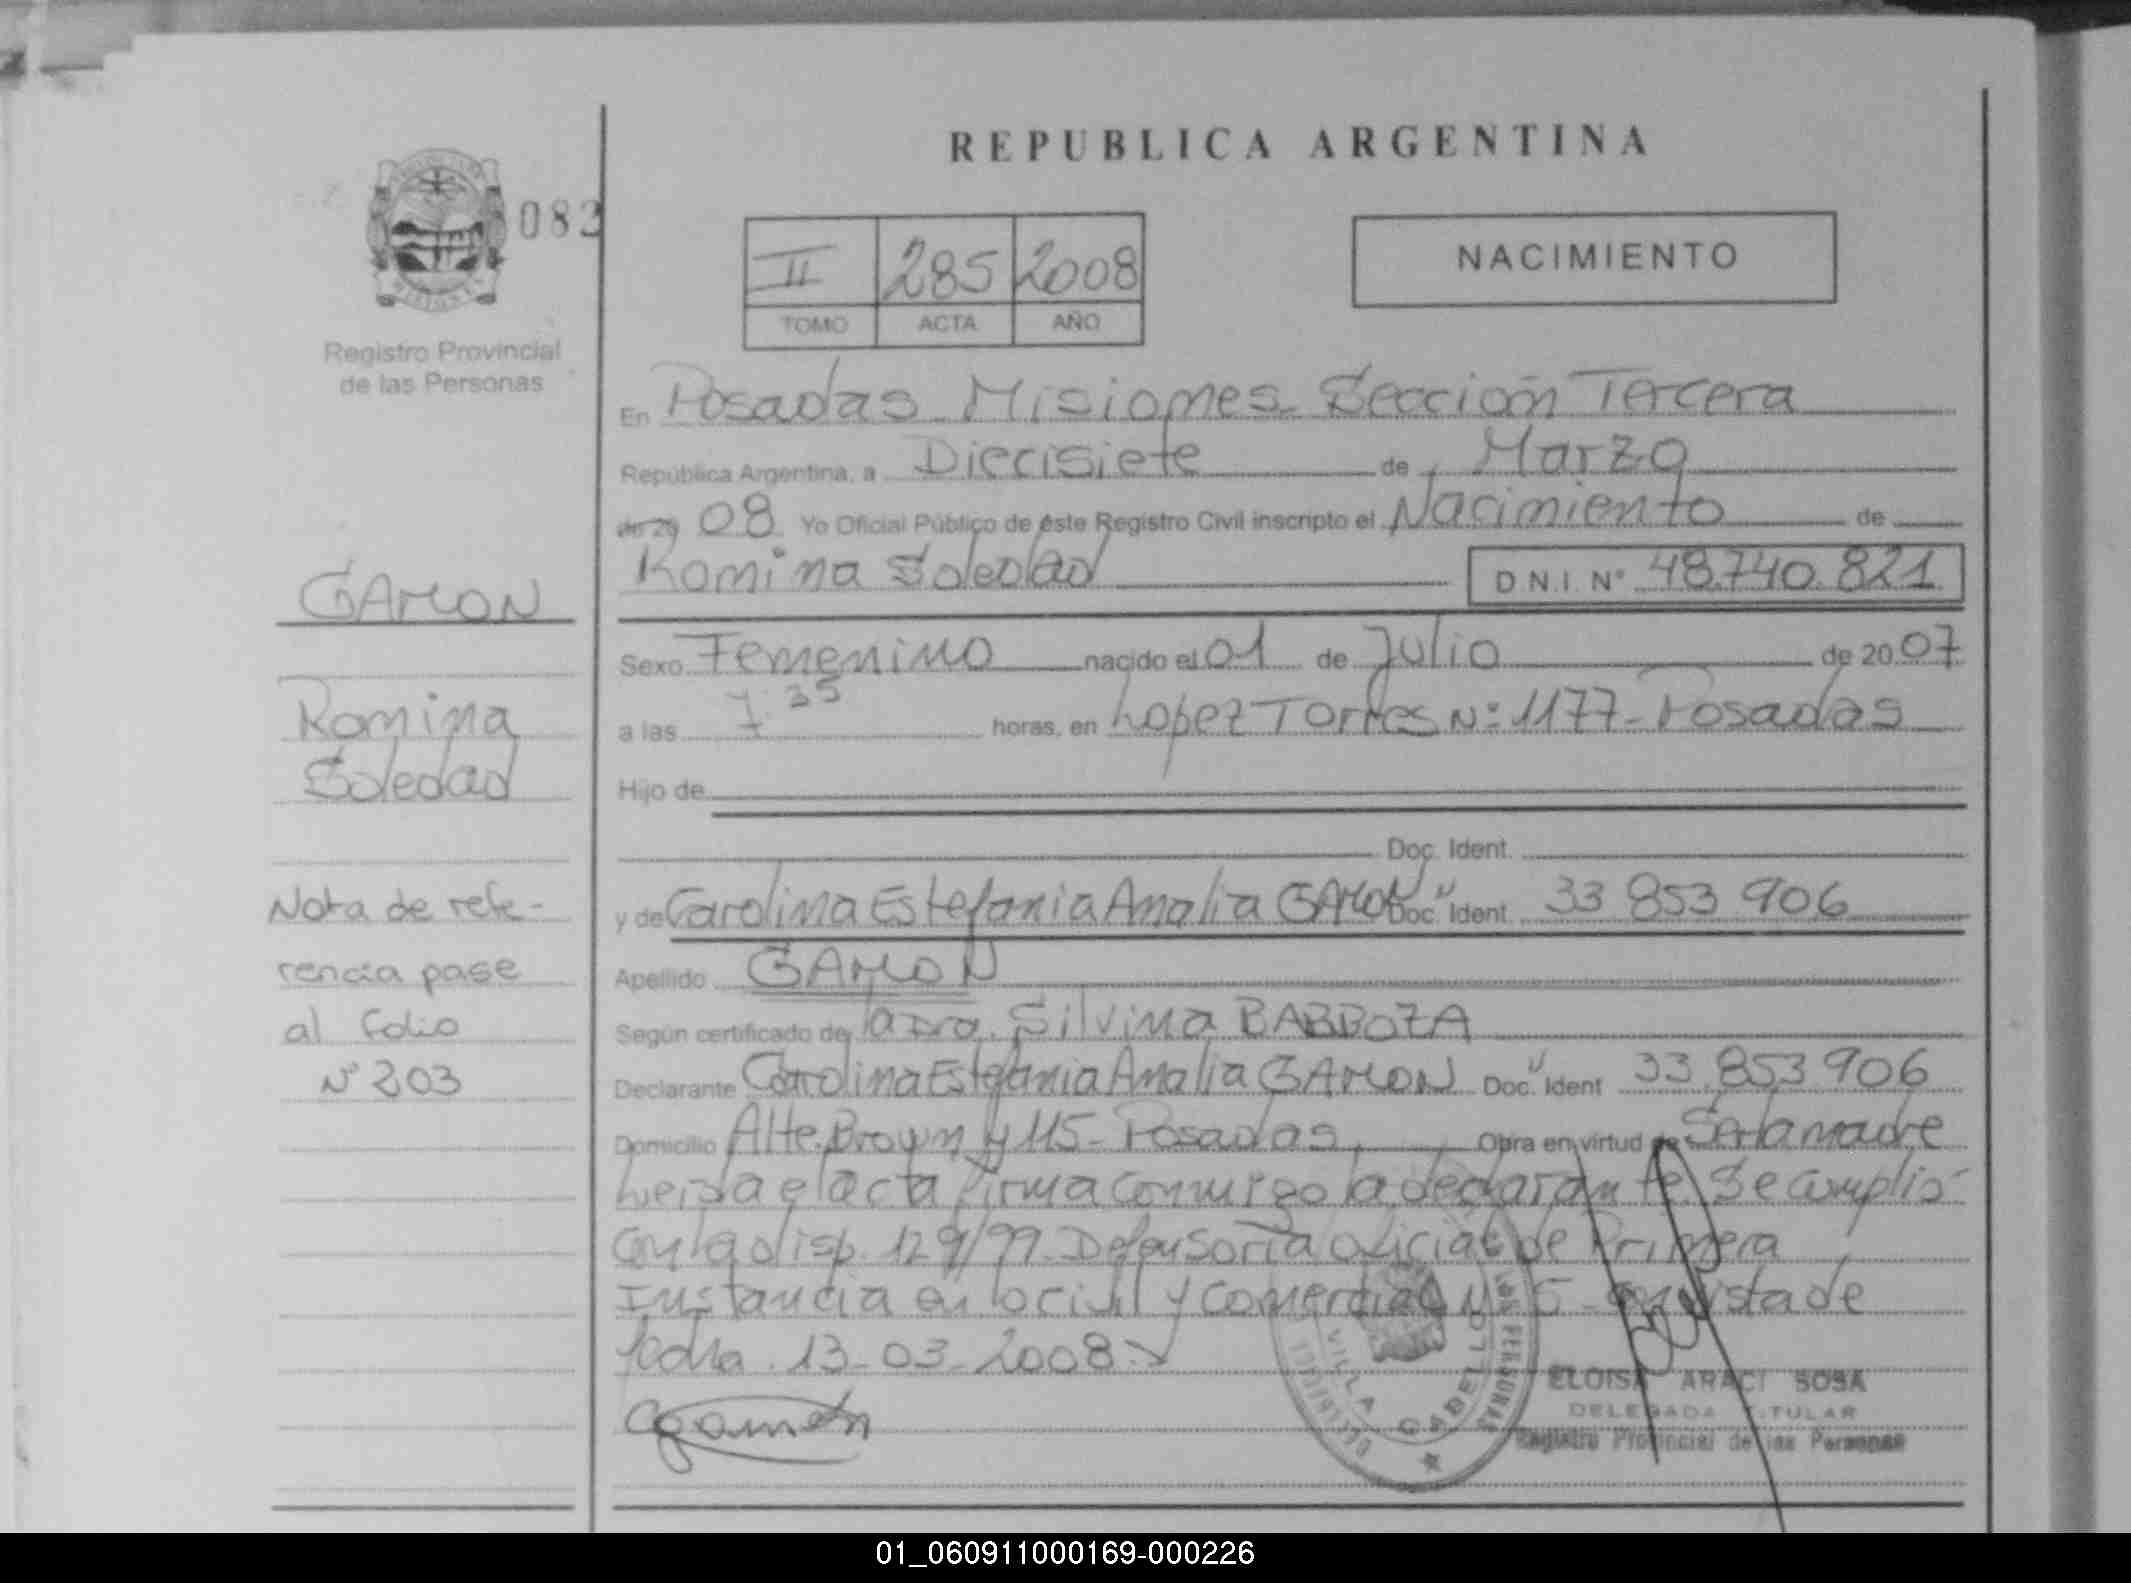 REPUBLICA ARGENTINA
083
II 285 2008
TOMO ACTA AÑO
NACIMIENTO
Registro Provincial
de las Personas
En Posadas Misiones Sección Tercera
República Argentina, a Diecisiete de Marzo
de 20 08 Yo Oficial Público de éste Registro Civil inscripto el Nacimiento de
Romina Soledad D.N.I. N° 48.740.821
GAMON
Sexo Femenino nacido el 01 de Julio de 2007
Romina
Soledad
a las 7:35 horas, en Lopez Torres Nº 1177 - Posadas
Hijo de
Doc. Ident.
y de Carolina Estefania Analia GAMON Doc. Ident. 33 853 906
Nota de refe-
rencia pase
al folio
Nº 203
Apellido GAMON
Según certificado de la Dra. Silvina BARBOZA
Declarante Carolina Estefania Analia GAMON Doc. Ident 33.853 906
Domicilio Alte. Brown y 115 - Posadas Obra en virtud de Ser la madre
Leida el acta firma conmigo la declarante. Se cumplio
con la disp. 129/99. Defensoria oficial de Primera
Instancia en lo civil y Comercial Nº 5 - en vista de
fecha 13-03-2008.
Cgamon
VILLA CABELLO
ELOISA ARACI SOSA
DELEGADA TITULAR
Registro Provincial de las Personas
01_060911000169-000226